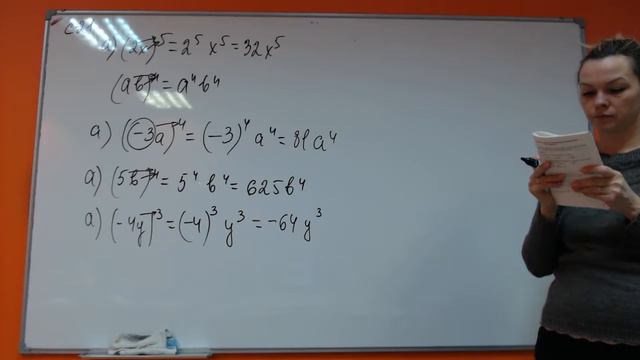 а) (2x)⁵ = 2⁵ x⁵ = 32x⁵
(aв)⁴ = a⁴ в⁴
а) (-3a)⁴ = (-3)⁴ a⁴ = 81 a⁴
а) (5в)⁴ = 5⁴ в⁴ = 625в⁴
а) (-4y)³ = (-4)³ y³ = -64 y³